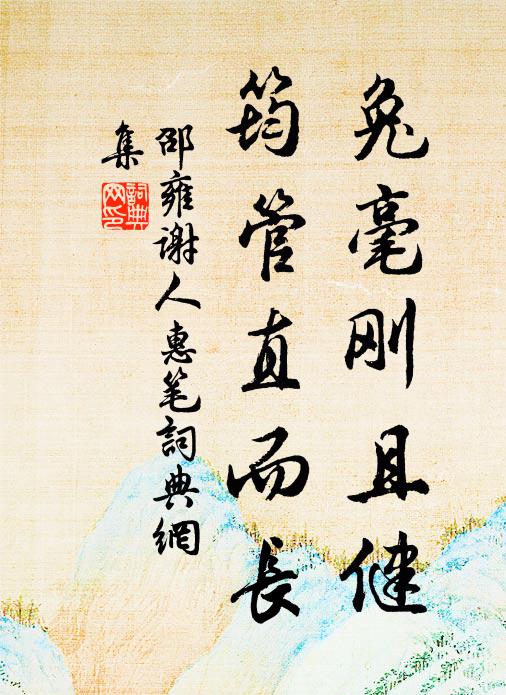 兔毫刚且健
筠管直而長
邵雍谢人惠笔詞典網
集
詞典
网印